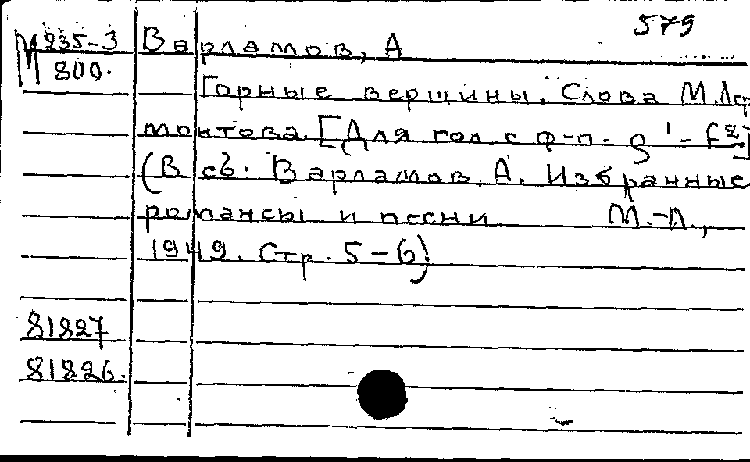 579
М 235-3
800.
Варламов, А
Горные вершины. Слова М. Лер
монтова. [Для гол. с ф-п. g¹-f²]
(В сб. Варламов, А. Избранные
романсы и песни М.-Л.,
1949. Стр. 5-6)
81827
81826.